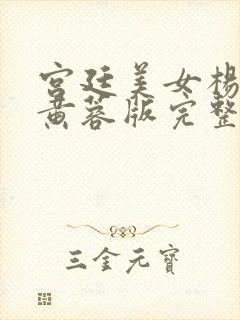 宫廷美女杨
黄蓉版完整
三金元寶